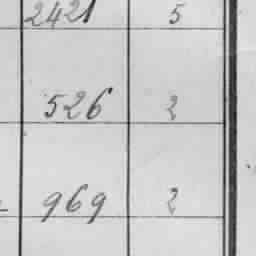 2421 5
526 2
969 2